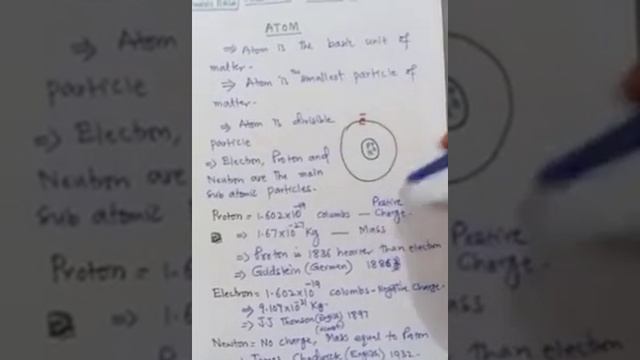 ATOM
⇒ Atom is the basic unit of
matter.
⇒ Atom is the smallest particle of
matter.
⇒ Atom is divisible
particle
⇒ Electron, Proton and
Neutron are the main
sub atomic particles.
ē
Proton = 1.602×10⁻¹⁹ columbs — Positive Charge.
⇒ 1.67×10⁻²⁷ Kg — Mass
⇒ Proton is 1836 heavier than electron
⇒ Goldstein (German) 1886
Electron = 1.602×10⁻¹⁹ columbs - Negative Charge.
⇒ 9.109×10⁻³¹ Kg.
⇒ JJ Thomson (English) 1897
Neutron = No charge, Mass equal to Proton
James Chadwick (English) 1932.